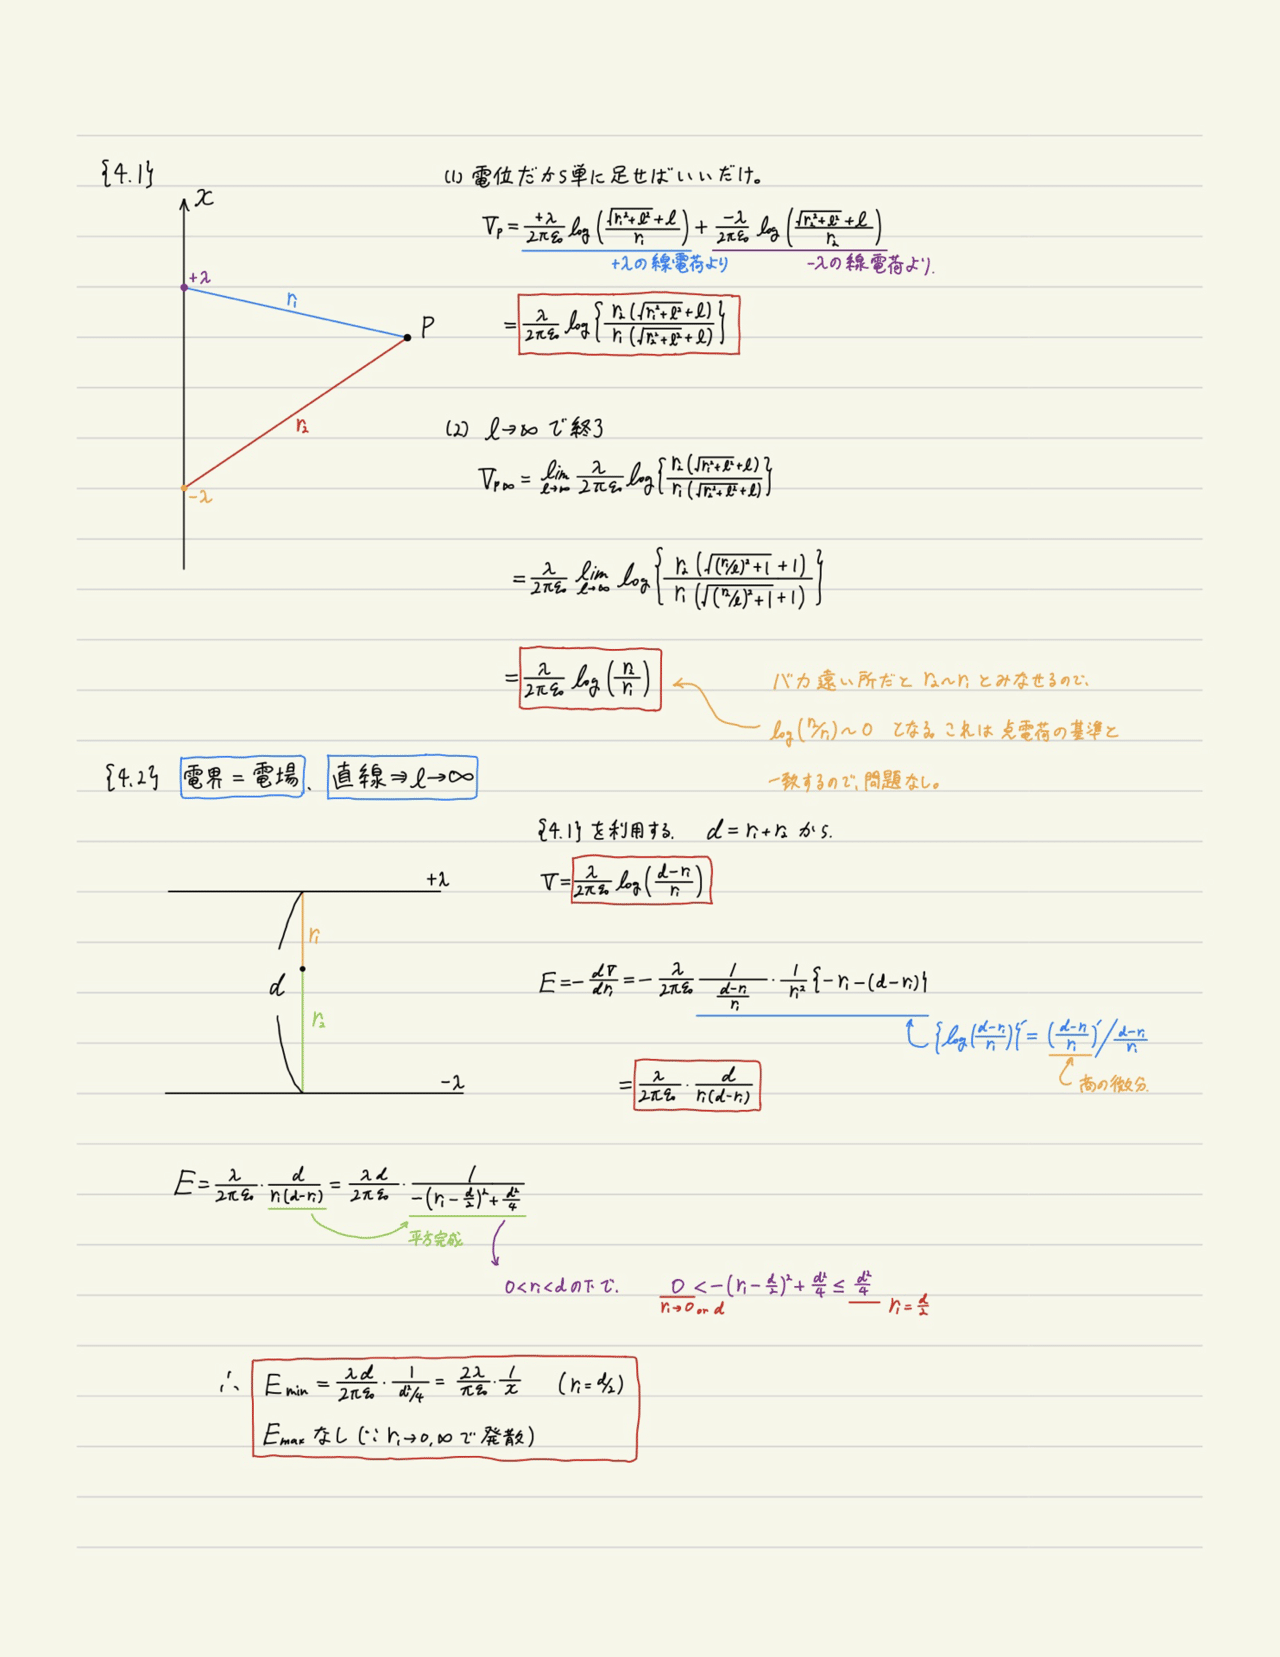 {4.1}
x
+λ
r₁
P
r₂
-λ
(1) 電位だから単に足せばいいだけ。
V_P = +λ/2πε₀ log(√(r₁²+l²)+l / r₁) + -λ/2πε₀ log(√(r₂²+l²)+l / r₂)
+λの線電荷より
-λの線電荷より.
= λ/2πε₀ log{r₂(√(r₁²+l²)+l) / r₁(√(r₂²+l²)+l)}
(2) l→∞ で終了
V_P∞ = lim l→∞ λ/2πε₀ log{r₂(√(r₁²+l²)+l) / r₁(√(r₂²+l²)+l)}
= λ/2πε₀ lim l→∞ log{r₂(√((r₁/l)²+1)+1) / r₁(√((r₂/l)²+1)+1)}
= λ/2πε₀ log(r₂/r₁)
バカ遠い所だと r₂~r₁ とみなせるので、
log(r₂/r₁)~0 となる。これは点電荷の基準と
一致するので、問題なし。
{4.2} 電界 = 電場 、 直線 ⇒ l→∞
{4.1} を利用する. d = r₁+r₂ から.
V = λ/2πε₀ log(d-r₁ / r₁)
+λ
r₁
d
r₂
-λ
E = -dV/dr₁ = -λ/2πε₀ 1/((d-r₁)/r₁) · 1/r₁² {-r₁-(d-r₁)}
{log(d-r₁/r₁)}' = (d-r₁/r₁)' / d-r₁/r₁
商の微分.
= λ/2πε₀ · d/r₁(d-r₁)
E = λ/2πε₀ · d/r₁(d-r₁) = λd/2πε₀ · 1/(-(r₁-d/2)²+d²/4)
平方完成
0<r₁<d の下で. 0 < -(r₁-d/2)²+d²/4 ≤ d²/4
r₁→0 or d
r₁=d/2
∴ E min = λd/2πε₀ · 1/(d²/4) = 2λ/πε₀ · 1/x (r₁=d/2)
E max なし (∵ r₁→0,∞で発散)